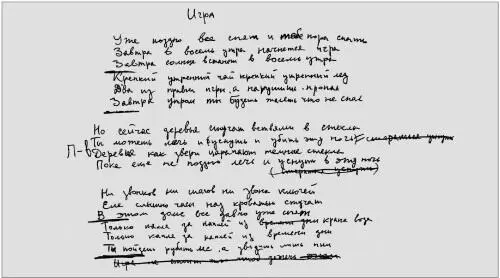 Игра
Уже поздно все спят и тебе пора спать
Завтра в восемь утра начнется игра
Завтра солнце встанет в восемь утра
Крепкий утренний чай крепкий утренний лед
Два из правил игры, а нарушишь - пропал
Завтра утром ты будешь жалеть что не спал
Но сейчас деревья стучат ветвями в стекла
Ты можешь лечь и уснуть и убить эту ночь
П-в Деревья как звери царапают темные стекла
Пока еще не поздно лечь и уснуть в эту ночь
Ни звонков ни шагов ни звона ключей
Еле слышно часы над кроватью стучат
В этом доме все давно уже спят
Только капля за каплей из крана вода
Только капля за каплей из времени дни
Ты пойдешь рубить лес, а увидишь лишь пни